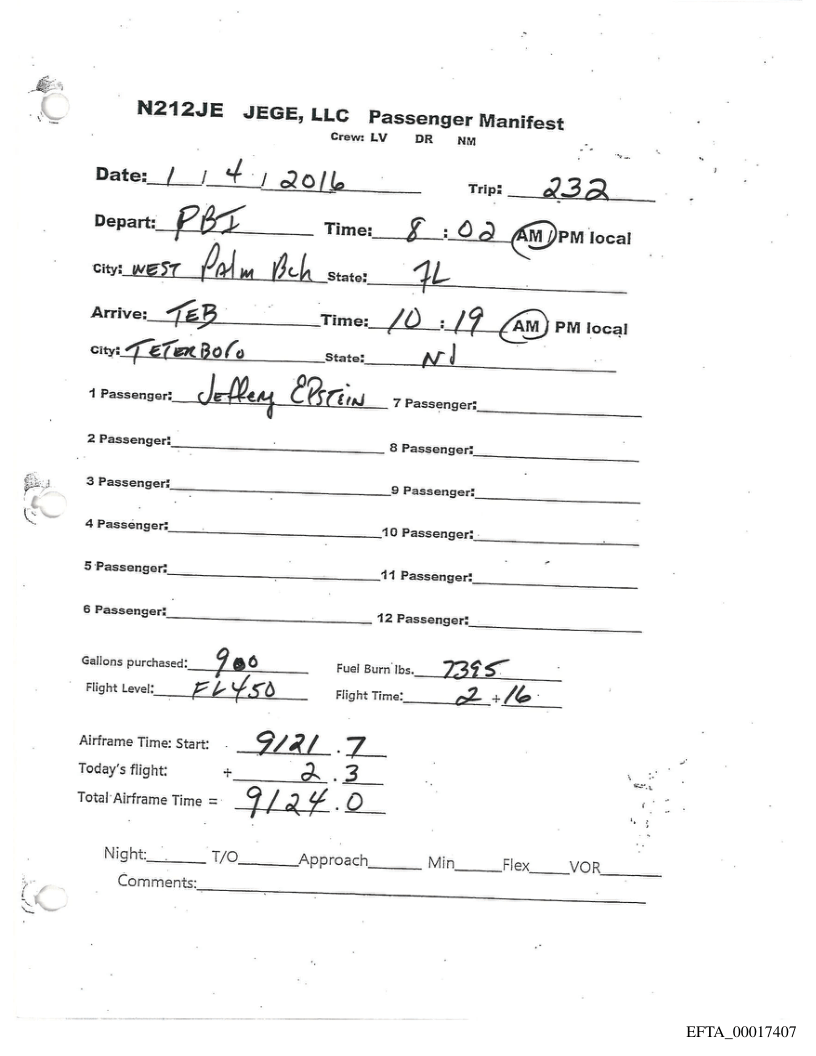 N212JE JEGE, LLC Passenger Manifest
Crew: LV DR NM
Date: 1 / 4 / 2016 Trip: 232
Depart: PBI Time: 8 : 02 AM / PM local
City: WEST Palm Bch State: FL
Arrive: TEB Time: 10 : 19 AM PM local
City: TETERBORO State: NJ
1 Passenger: Jeffery EPSTEIN 7 Passenger:
2 Passenger: 8 Passenger:
3 Passenger: 9 Passenger:
4 Passenger: 10 Passenger:
5 Passenger: 11 Passenger:
6 Passenger: 12 Passenger:
Gallons purchased: 900 Fuel Burn lbs. 7395
Flight Level: FL450 Flight Time: 2 + 16
Airframe Time: Start: 9121 . 7
Today's flight: + 2 . 3
Total Airframe Time = 9124 . 0
Night: T/O Approach Min Flex VOR
Comments:
EFTA_00017407